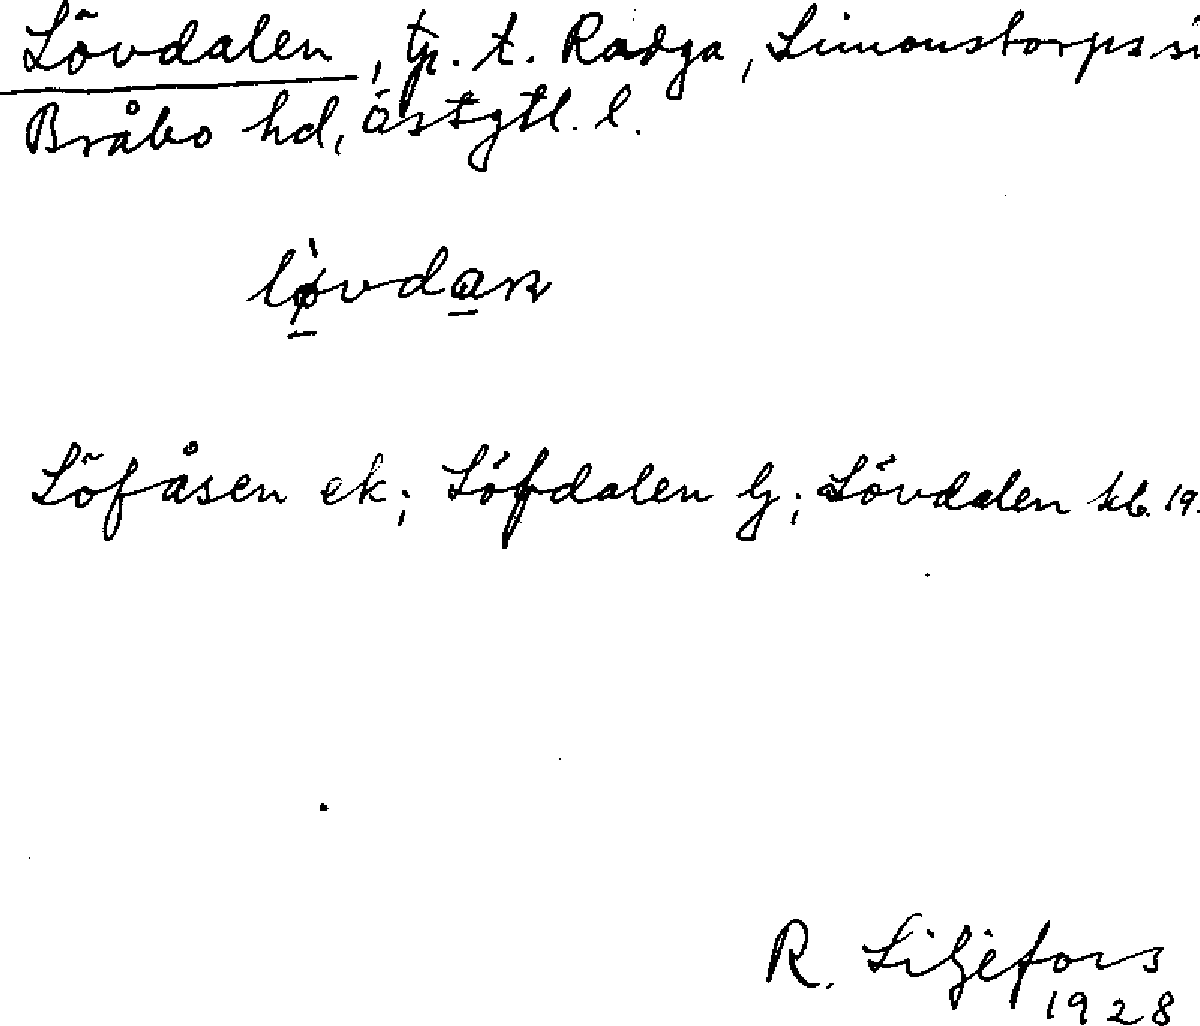 Lövdalen, tp. t. Rodga, Simonstorps sn
Bråbo hd, Östgtl. l.
Löfåsen ek; Löfdalen lj; Lövdalen kb. 19.
R. Liljefors
1928